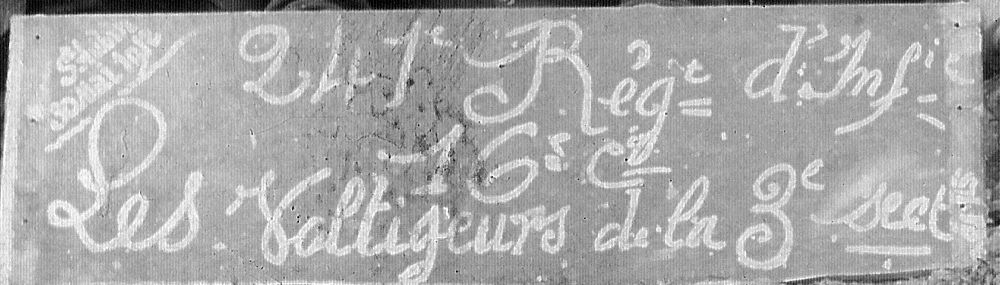 241e Régt d'Infie
16e Cie
Les Voltigeurs de la 3e sectn